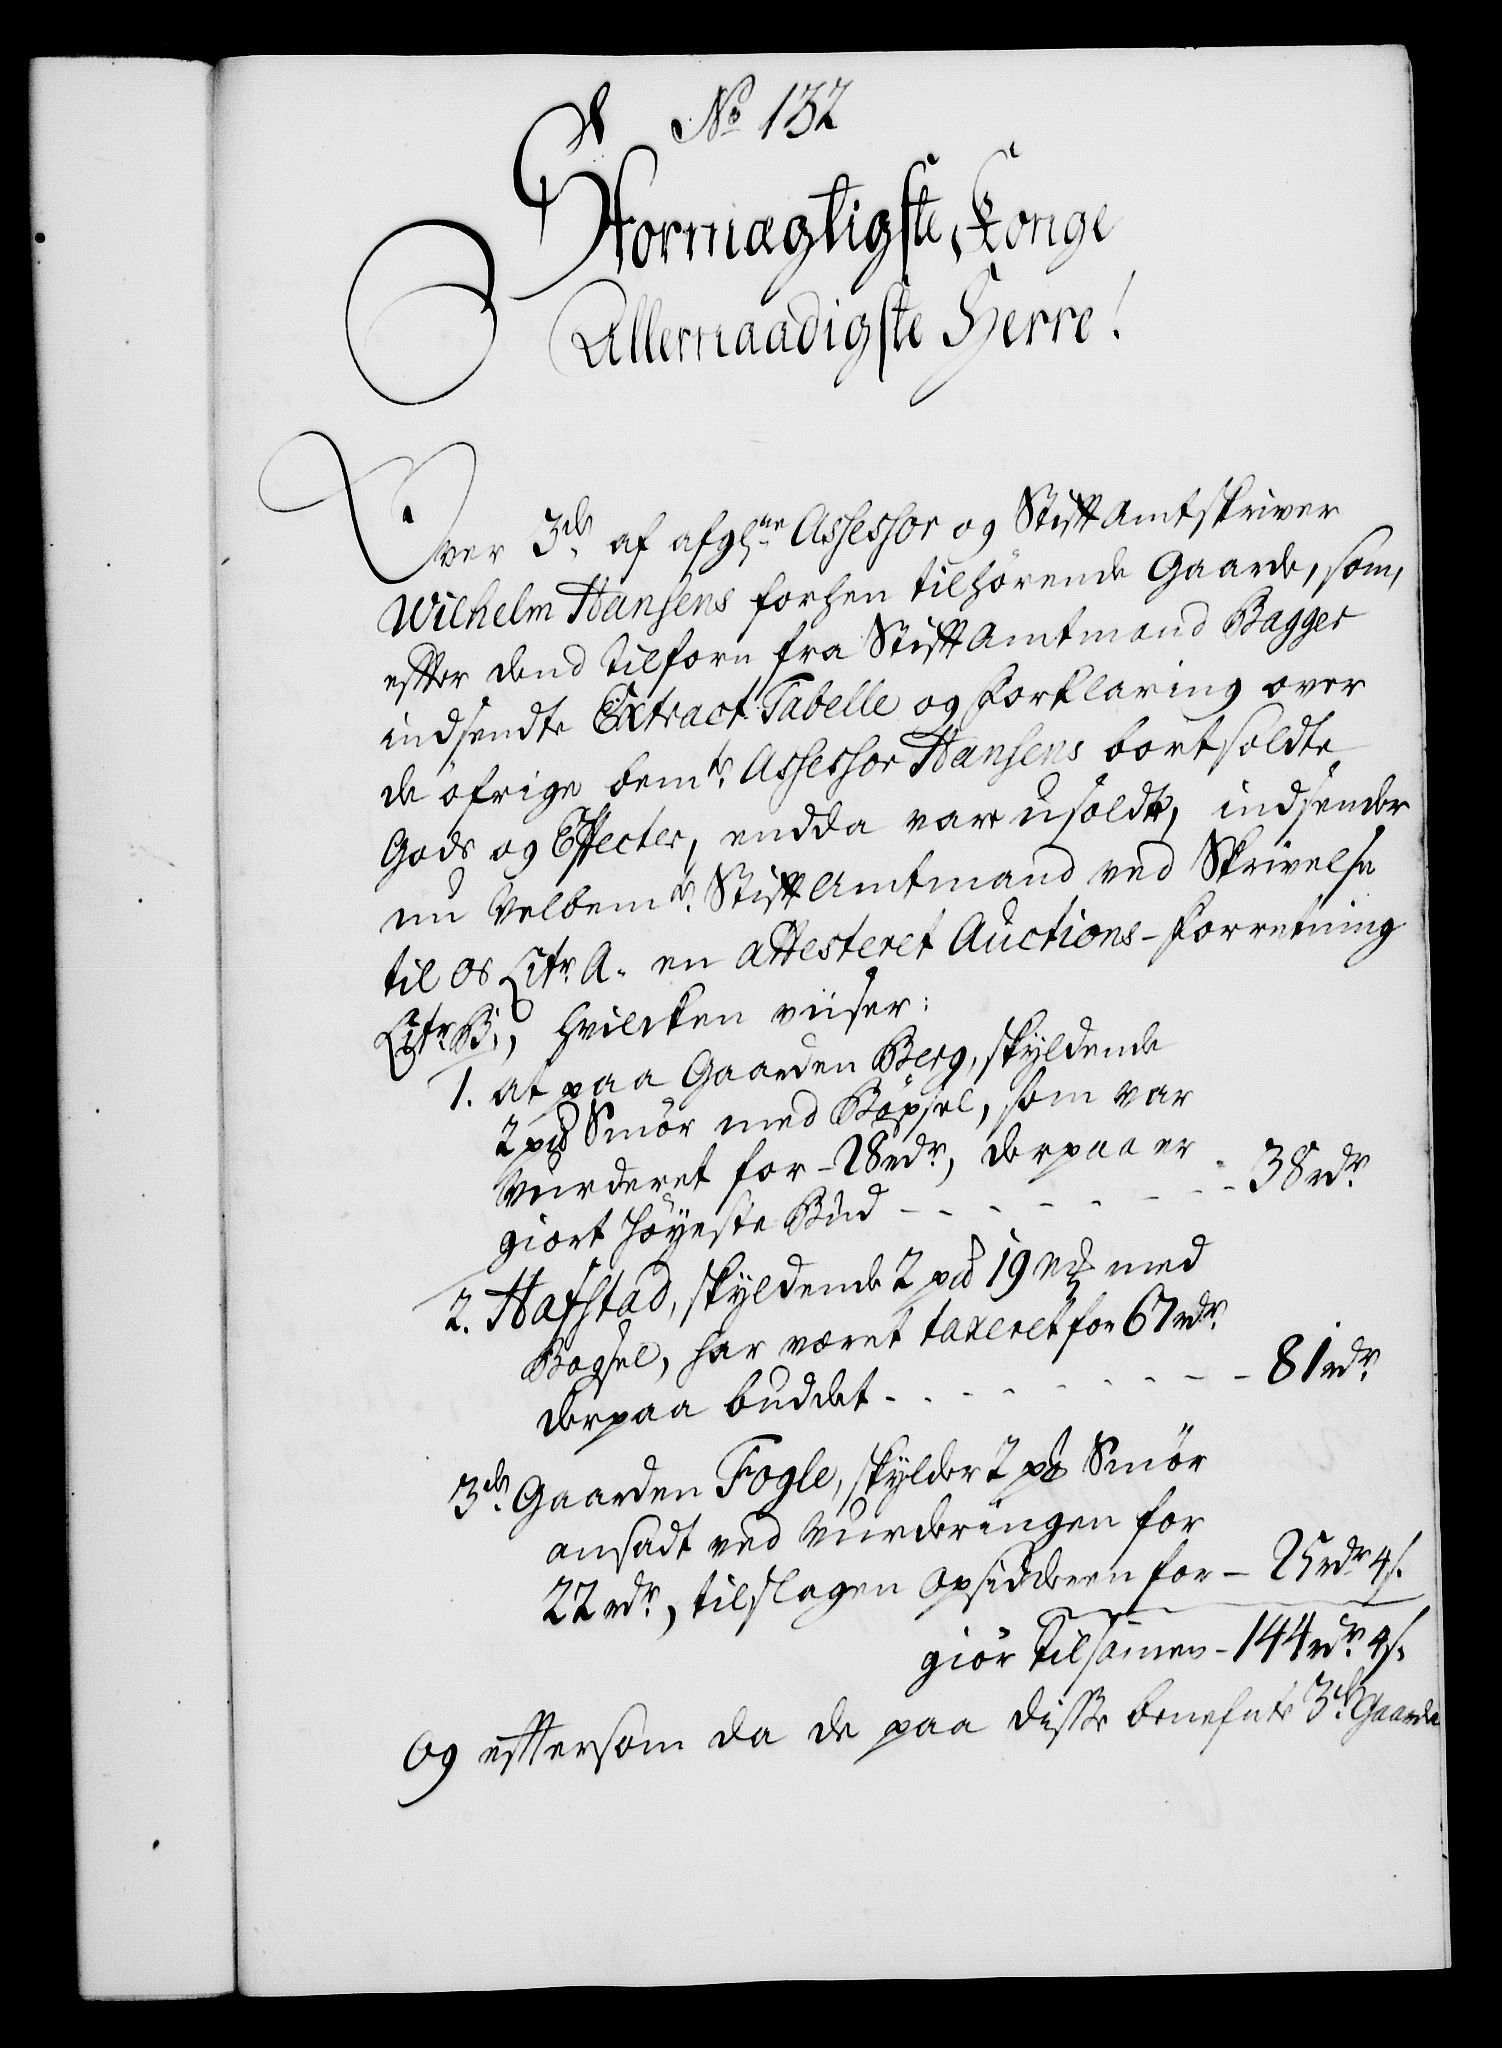 No 132
Stormægtigste Konge
Allernaadigste Herre!
Over 3de af afgl:ne Assessor og Stift Amtskriver
Wilhelm Hansens forhen tilhörende Gaarde, som,
efter dend tilforn fra Stift Amtmand Bagger
indsendte Extract Tabelle og Forklaring over
de öfrige bemte Assessor Hansens bortsoldte
Gods og Effecter, endda vare usoldte, indsender
nu Velbemte Stift Amtmand ved Skrivelse
til os Litr. A. en attesteret Auctions-Forretning
Litr. B., hvilcken viiser:
1. at paa Gaarden Berg, skyldende
2 pd Smör med Böxsel, som var
Vurderet for - 28 rdr, derpaa er
giort höyeste Bud - - - - - - - - 38 rdr
2. Hafstad, skyldende 2 pd 19 mk med
Bogsel, har været taxeret for 67 rdr.
derpaa buddet - - - - - - - - - 81 rdr
3de Gaarden Fogle, skylder 2 pd Smör
ansadt ved Vurderingen for
22 rdr, tilslagen Opsidderen for - 25 rdr 4 s.
giör Tilsamen - 144 rdr 4 s.
Og eftersom da de paa disse benefnte 3de Gaarde